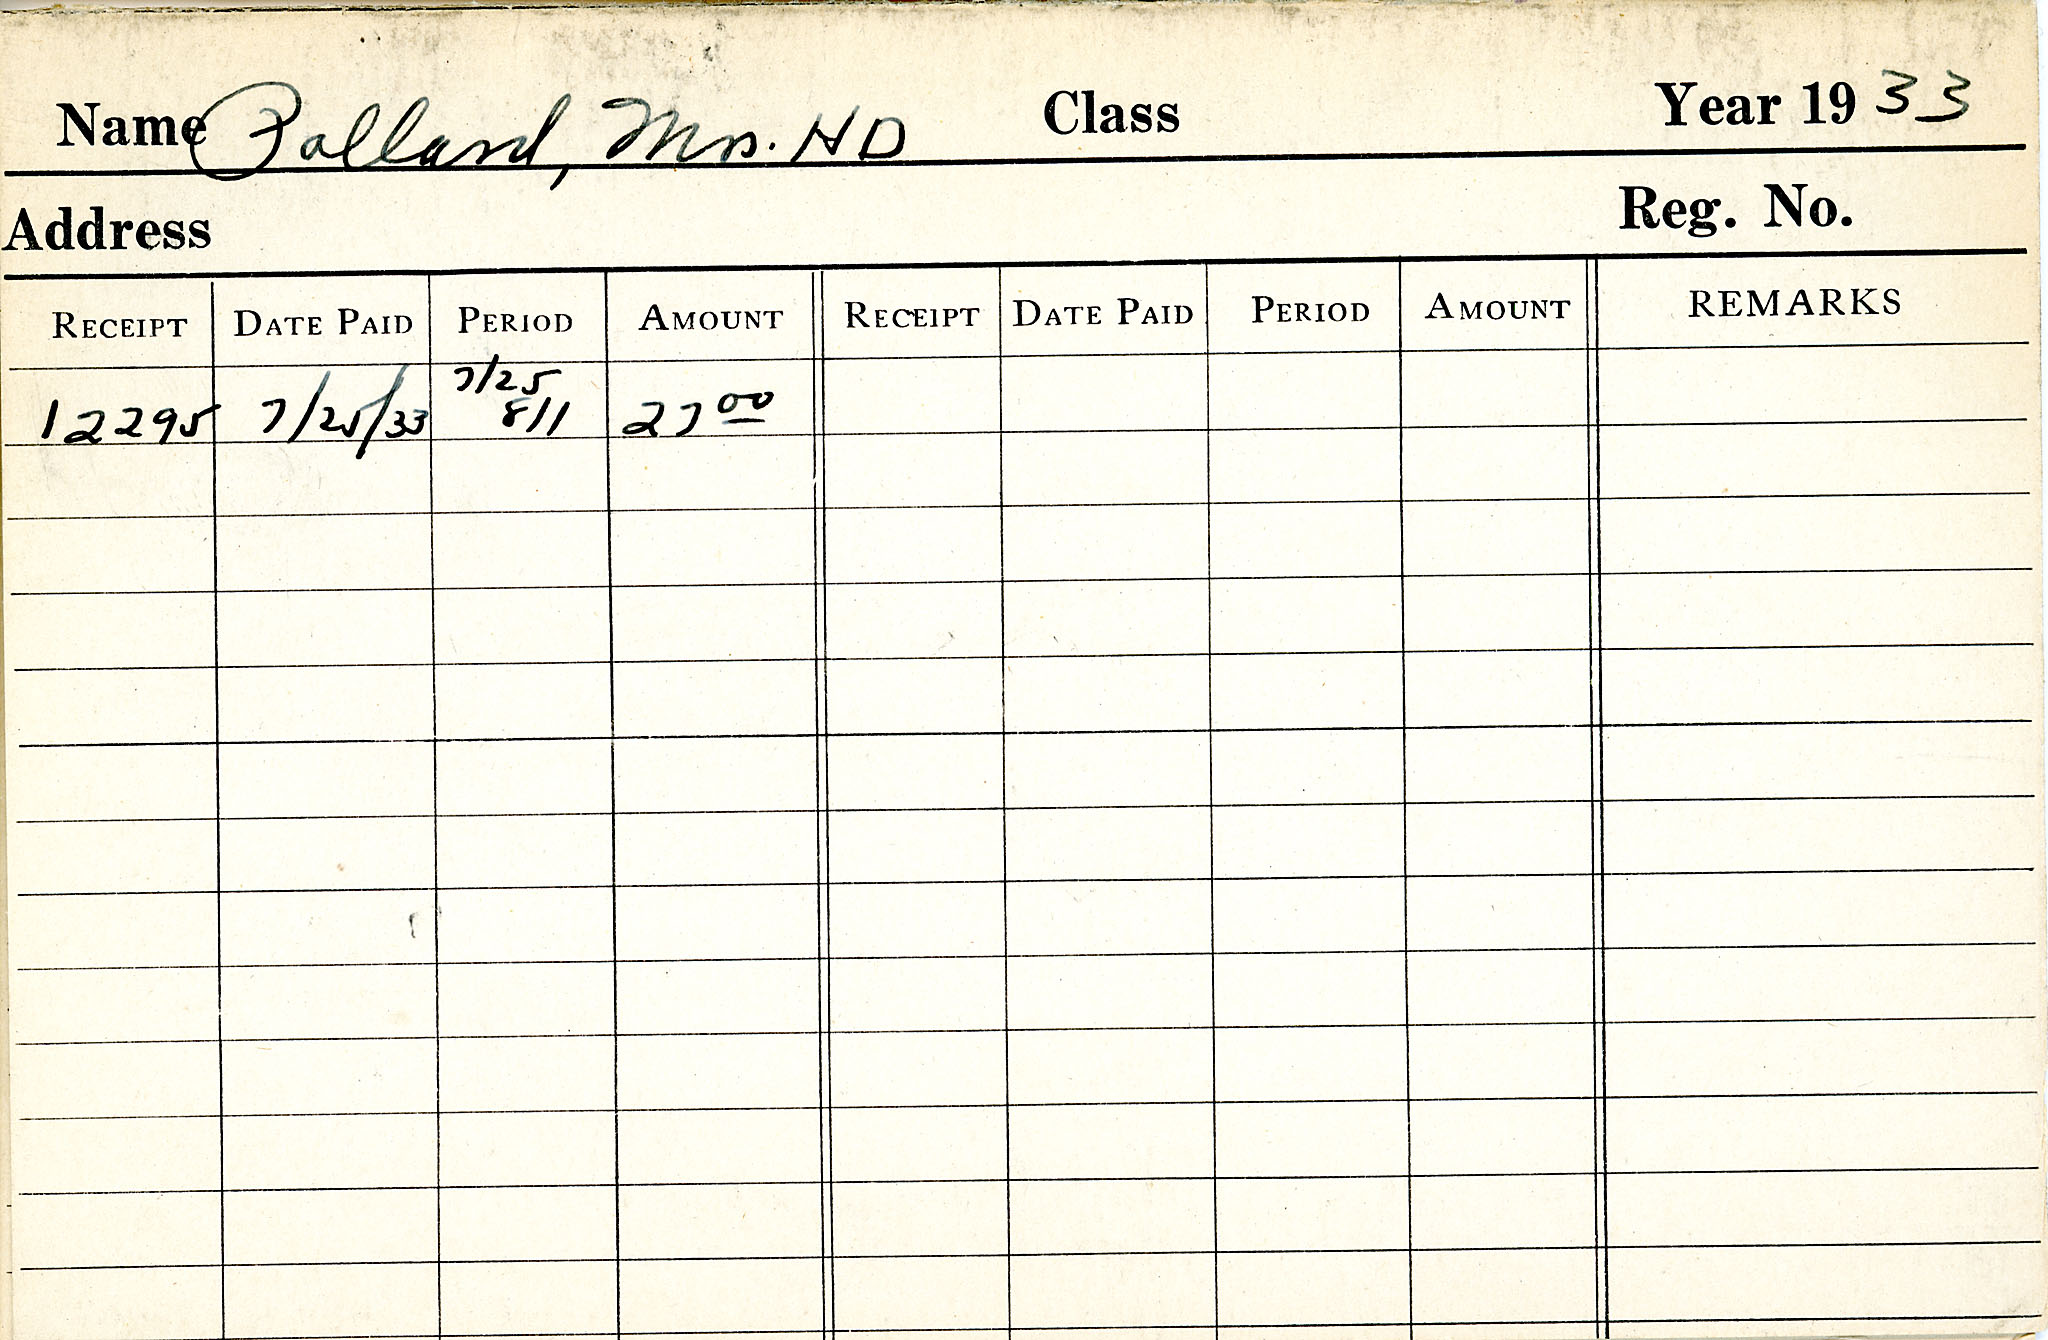 Name Pollard, Mrs. HD Class Year 1933
Address Reg. No.
RECEIPT DATE PAID PERIOD AMOUNT RECEIPT DATE PAID PERIOD AMOUNT REMARKS
7/25
12295 7/25/33 8/1 27 00